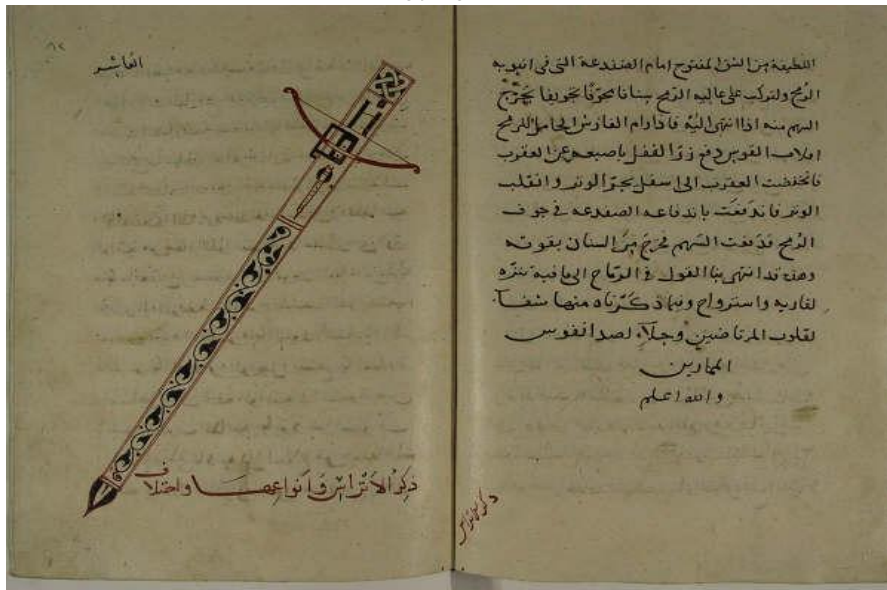 اللطيفة من الشق المفتوح امام الضفدعة التى فى انبوبة
الرمح ولتركب على عالية الرمح سنانا مجوفا تجويفا يخرج
السهم منه اذا انتهى اليه فاذا رام الفارس الحامل للرمح
افلات القوس دفع زر القفل باصبعه عن العقرب
فانخفضت العقرب الى اسفل بجر الوتر وانقلب
الوتر فاندفعت باندفاعه الضفدعه فى جوف
الرمح فدفعت السهم فخرج من السنان بقوته
وهنا قد انتهى بنا القول فى الرماح الى ما فيه نزه
لقاريه واسترواح وفيما ذكرناه منها شفآ
لقلوب المرتاضين وجلآ لصدا نفوس
الممارين
والله اعلم
ذكر الاتراس
العاشر
ذكر الاتراس وانواعها واختلاف